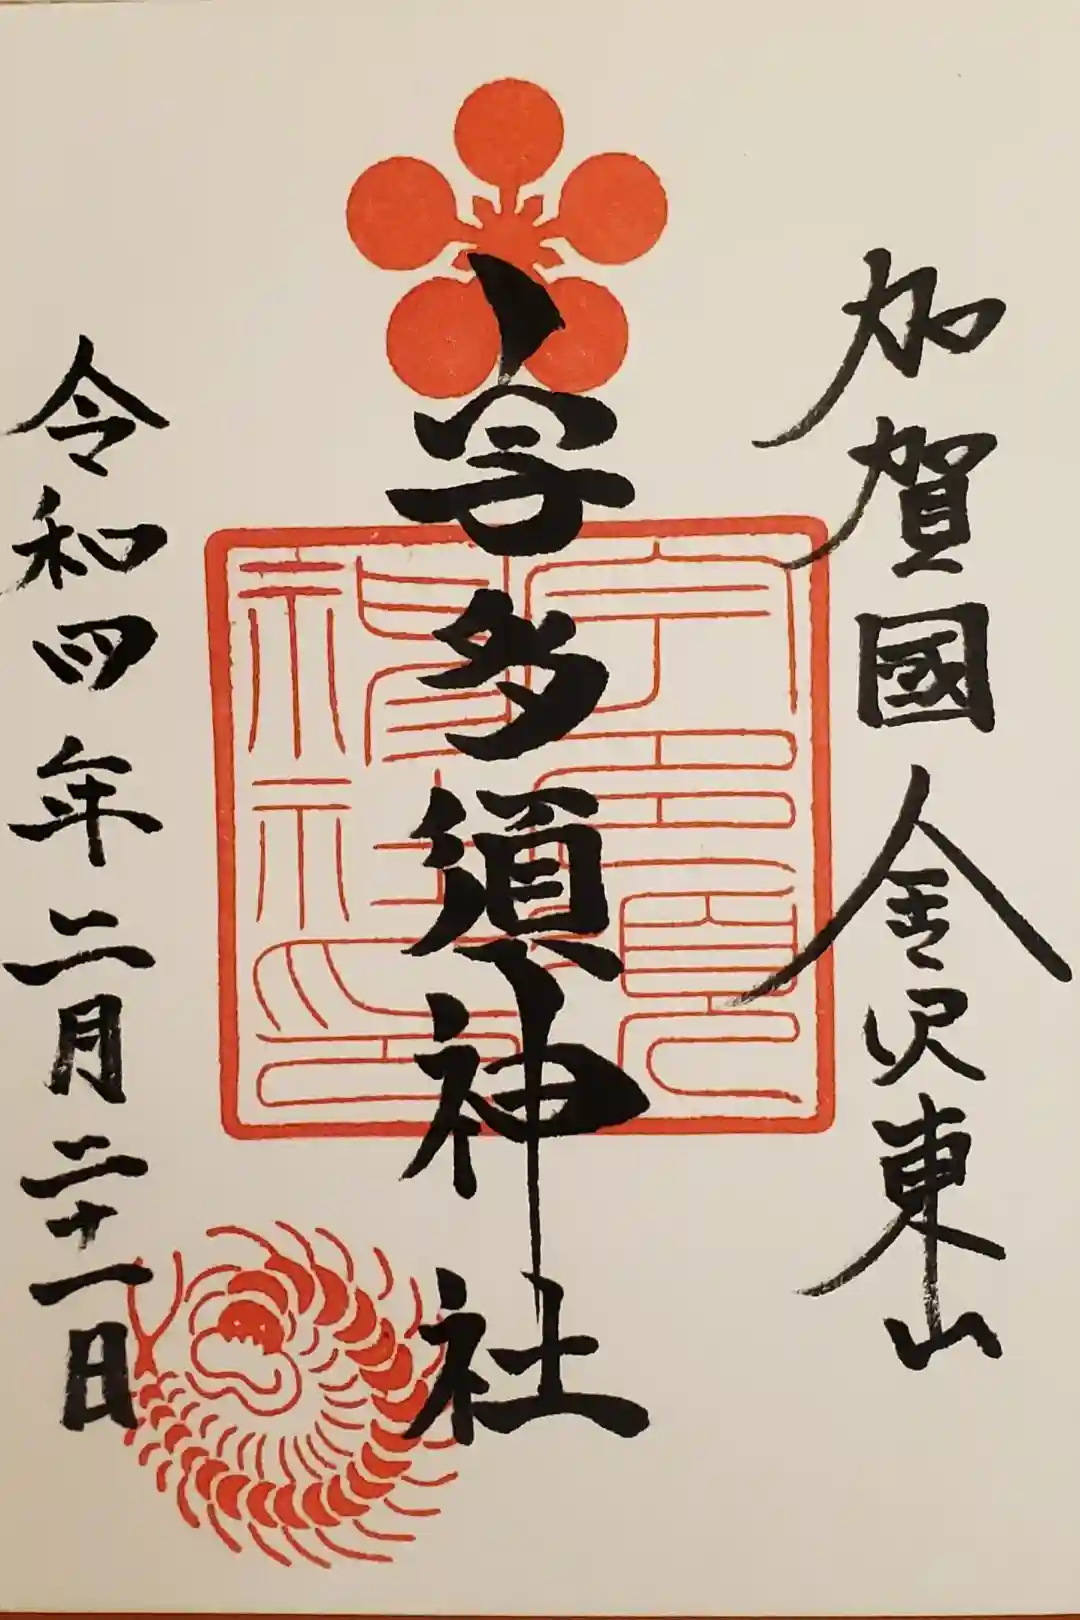 加賀國金沢東山
宇多須神社
令和四年二月二十一日
宇多須
神社印